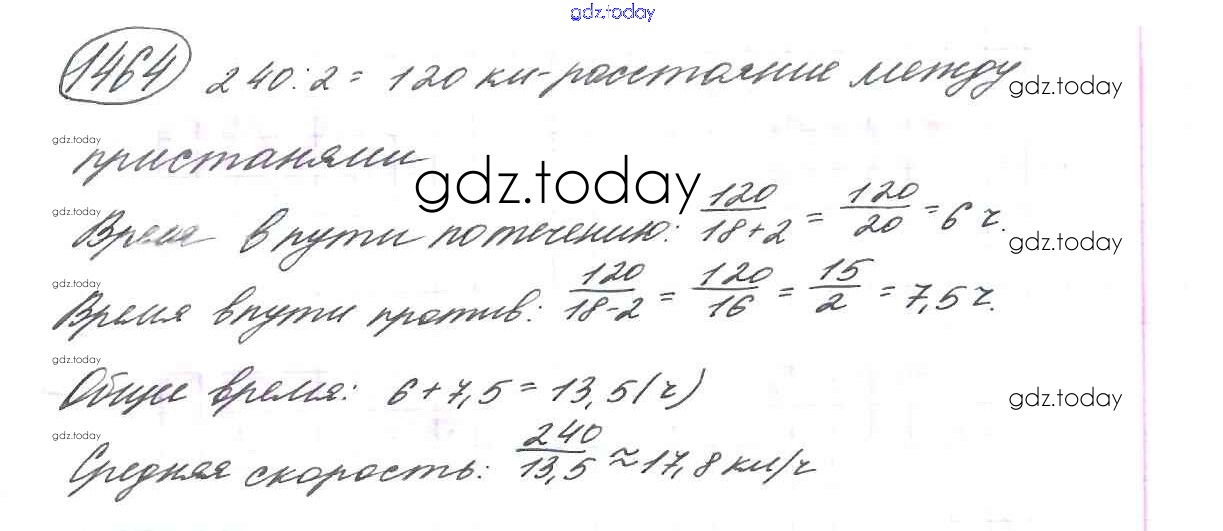 gdz.today
1464 240:2= 120 км-расстояние между gdz.today
gdz.today
пристанями
gdz.today
gdz.today
Время в пути по течению: 120/18+2 = 120/20 = 6 ч.
gdz.today
gdz.today
Время в пути против: 120/18-2 = 120/16 = 15/2 = 7,5 ч.
gdz.today
Общее время: 6+7,5=13,5(ч)
gdz.today
gdz.today
Средняя скорость: 240/13,5 ≈17,8 км/ч